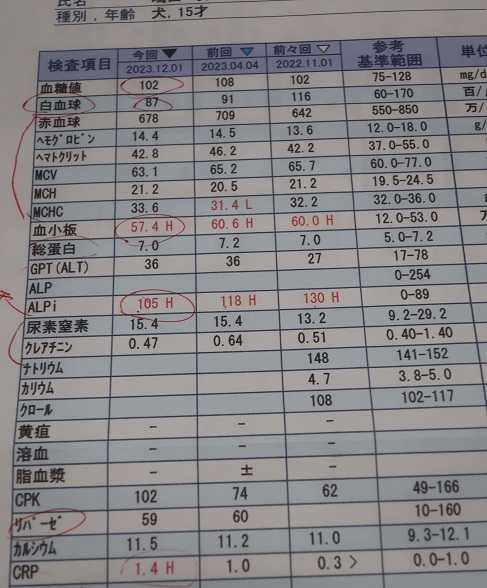 氏名
種別，年齢 犬，15才
検査項目 今回▼ 2023.12.01 前回▼ 2023.04.04 前々回▽ 2022.11.01 参考基準範囲 単位
血糖値 102 108 102 75-128 mg/d
白血球 87 91 116 60-170 百/
赤血球 678 709 642 550-850 万/
ﾍﾓｸﾞﾛﾋﾞﾝ 14.4 14.5 13.6 12.0-18.0 g
ﾍﾏﾄｸﾘｯﾄ 42.8 46.2 42.2 37.0-55.0
MCV 63.1 65.2 65.7 60.0-77.0
MCH 21.2 20.5 21.2 19.5-24.5
MCHC 33.6 31.4 L 32.2 32.0-36.0
血小板 57.4 H 60.6 H 60.0 H 12.0-53.0 万
総蛋白 7.0 7.2 7.0 5.0-7.2
GPT(ALT) 36 36 27 17-78
ALP 0-254
ALPi 105 H 118 H 130 H 0-89
尿素窒素 15.4 15.4 13.2 9.2-29.2
ｸﾚｱﾁﾆﾝ 0.47 0.64 0.51 0.40-1.40
ﾅﾄﾘｳﾑ 148 141-152
ｶﾘｳﾑ 4.7 3.8-5.0
ｸﾛｰﾙ 108 102-117
黄疸 － － －
溶血 － － －
脂血漿 － ± －
CPK 102 74 62 49-166
ﾘﾊﾟｰｾﾞ 59 60 10-160
ｶﾙｼｳﾑ 11.5 11.2 11.0 9.3-12.1
CRP 1.4 H 1.0 0.3 > 0.0-1.0